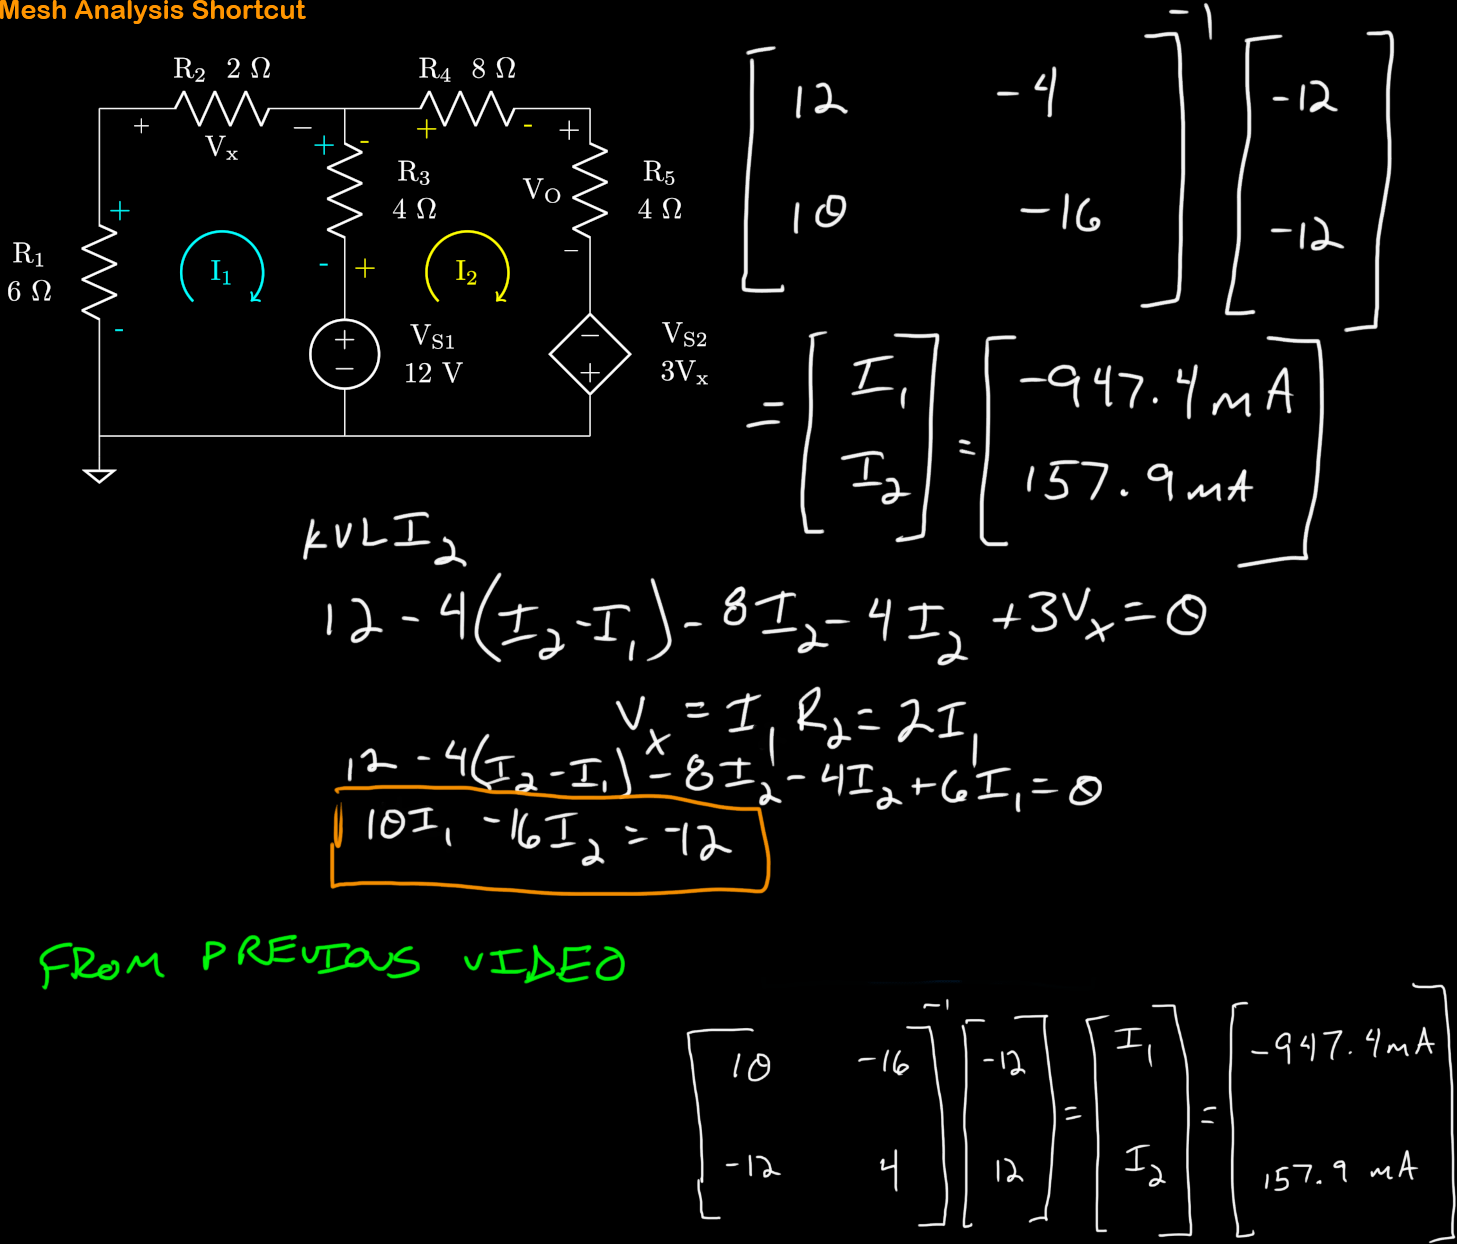 Mesh Analysis Shortcut
R2 2 Ω
R4 8 Ω
+ Vx −
+ -
+ -
+
R3
4 Ω
VO
R5
4 Ω
−
+
R1
6 Ω
-
I1
I2
- +
+
−
VS1
12 V
−
+
VS2
3Vx
[12 -4
10 -16]^-1 [-12
-12]
= [I1
I2] = [-947.4mA
157.9mA]
KVL I2
12 - 4(I2 - I1) - 8I2 - 4I2 + 3Vx = 0
Vx = I1 R2 = 2I1
12 - 4(I2 - I1) - 8I2 - 4I2 + 6I1 = 0
10I1 - 16I2 = -12
FROM PREVIOUS VIDEO
[10 -16
-12 4]^-1 [-12
12] = [I1
I2] = [-947.4mA
157.9 mA]